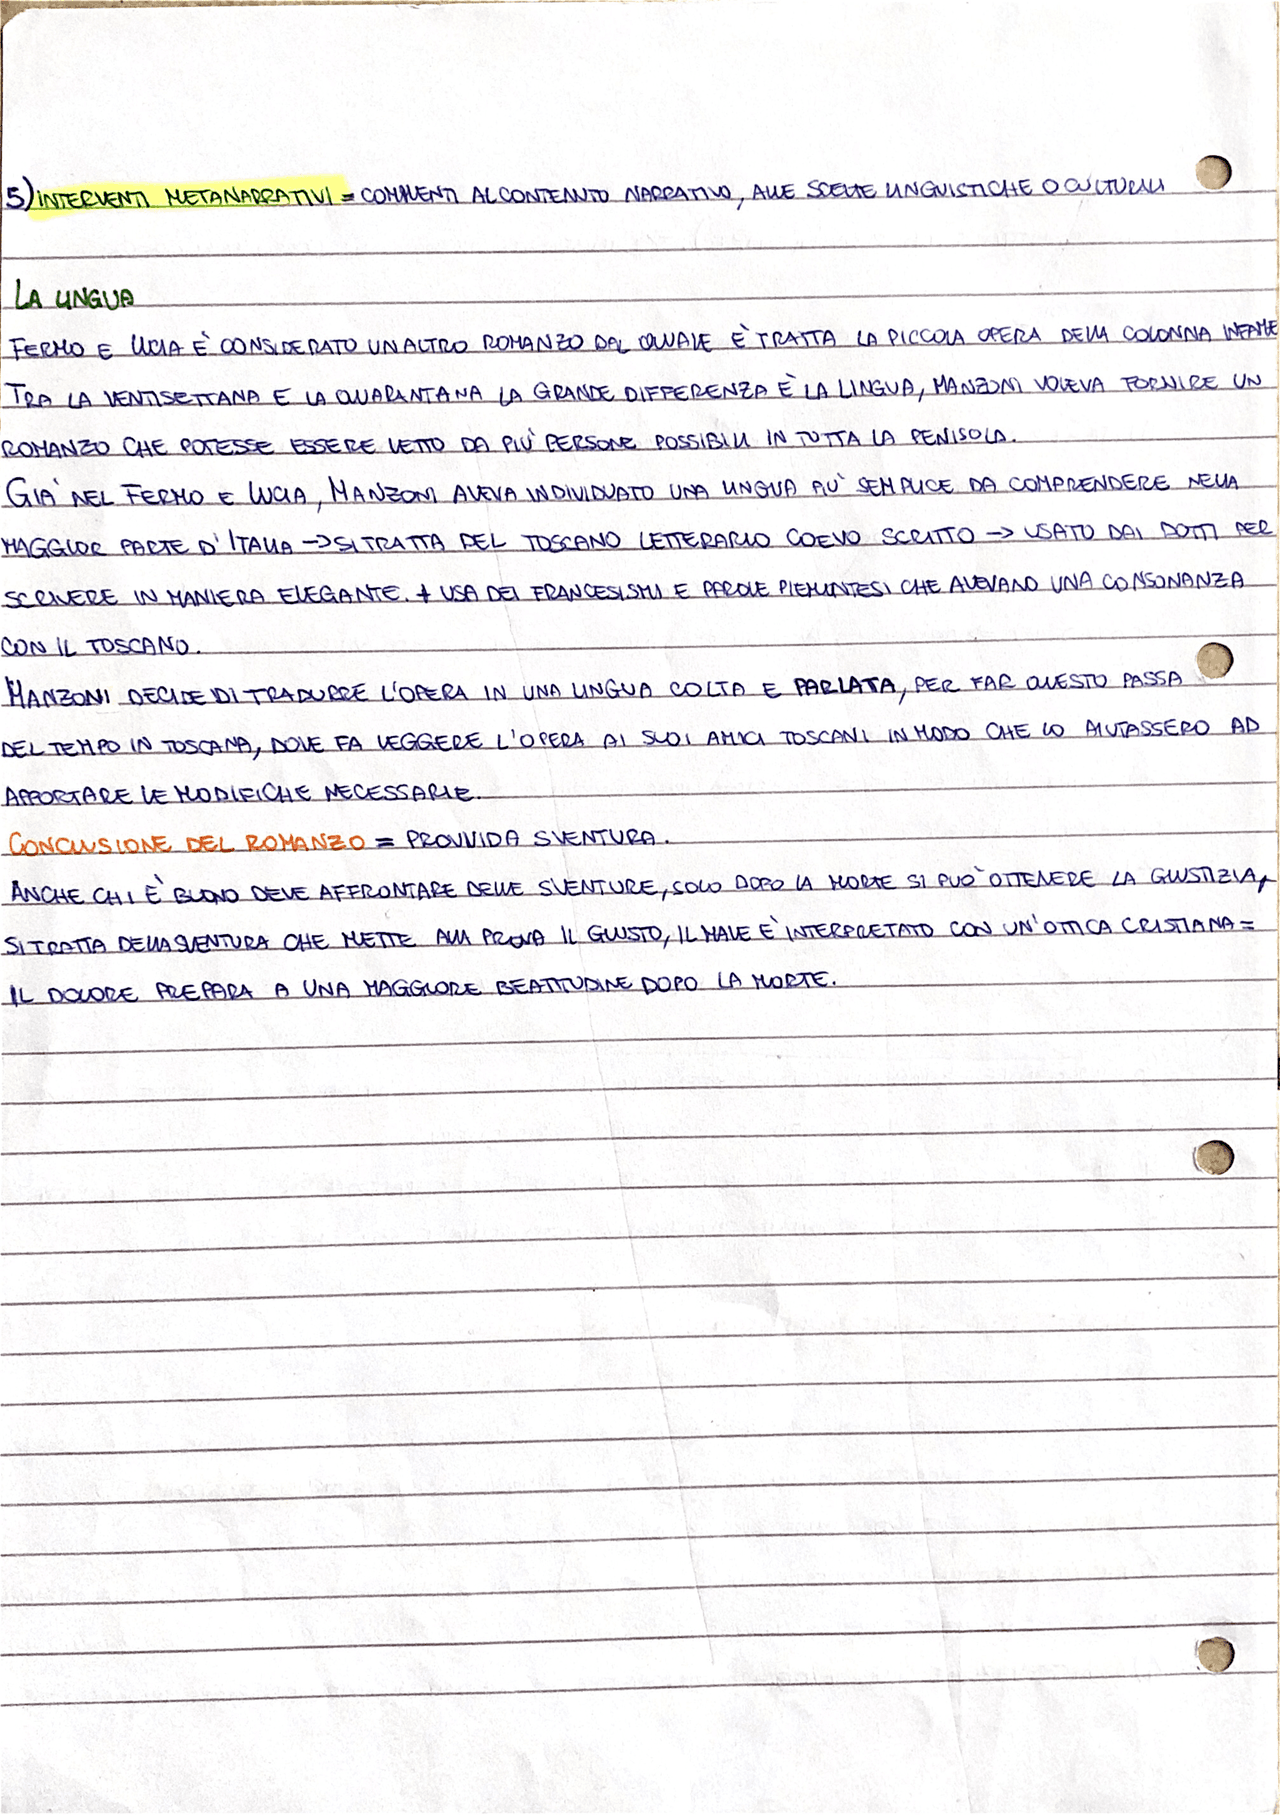 5) INTERVENTI METANARRATIVI = COMMENTI AL CONTENUTO NARRATIVO, ALLE SCELTE LINGUISTICHE O CULTURALI
LA LINGUA
FERMO E LUCIA È CONSIDERATO UN ALTRO ROMANZO DAL QUALE È TRATTA LA PICCOLA OPERA DELLA COLONNA INFAME
TRA LA VENTISETTANA E LA QUARANTANA LA GRANDE DIFFERENZA È LA LINGUA, MANZONI VOLEVA FORNIRE UN
ROMANZO CHE POTESSE ESSERE LETTO DA PIÙ PERSONE POSSIBILI IN TUTTA LA PENISOLA.
GIA' NEL FERMO E LUCIA, MANZONI AVEVA INDIVIDUATO UNA LINGUA PIÙ SEMPLICE DA COMPRENDERE NELLA
MAGGIOR PARTE D'ITALIA -> SI TRATTA DEL TOSCANO LETTERARIO COEVO SCRITTO -> USATO DAI DOTTI PER
SCRIVERE IN MANIERA ELEGANTE. + USA DEI FRANCESISMI E PAROLE PIEMONTESI CHE AVEVANO UNA CONSONANZA
CON IL TOSCANO.
MANZONI DECIDE DI TRADURRE L'OPERA IN UNA LINGUA COLTA E PARLATA, PER FAR QUESTO PASSA
DEL TEMPO IN TOSCANA, DOVE FA LEGGERE L'OPERA AI SUOI AMICI TOSCANI IN MODO CHE LO AIUTASSERO AD
APPORTARE LE MODIFICHE NECESSARIE.
CONCLUSIONE DEL ROMANZO = PROVVIDA SVENTURA.
ANCHE CHI È BUONO DEVE AFFRONTARE DELLE SVENTURE, SOLO DOPO LA MORTE SI PUÒ OTTENERE LA GIUSTIZIA,
SI TRATTA DELLA SVENTURA CHE METTE ALLA PROVA IL GIUSTO, IL MALE È INTERPRETATO CON UN'OTTICA CRISTIANA =
IL DOLORE PREPARA A UNA MAGGIORE BEATITUDINE DOPO LA MORTE.